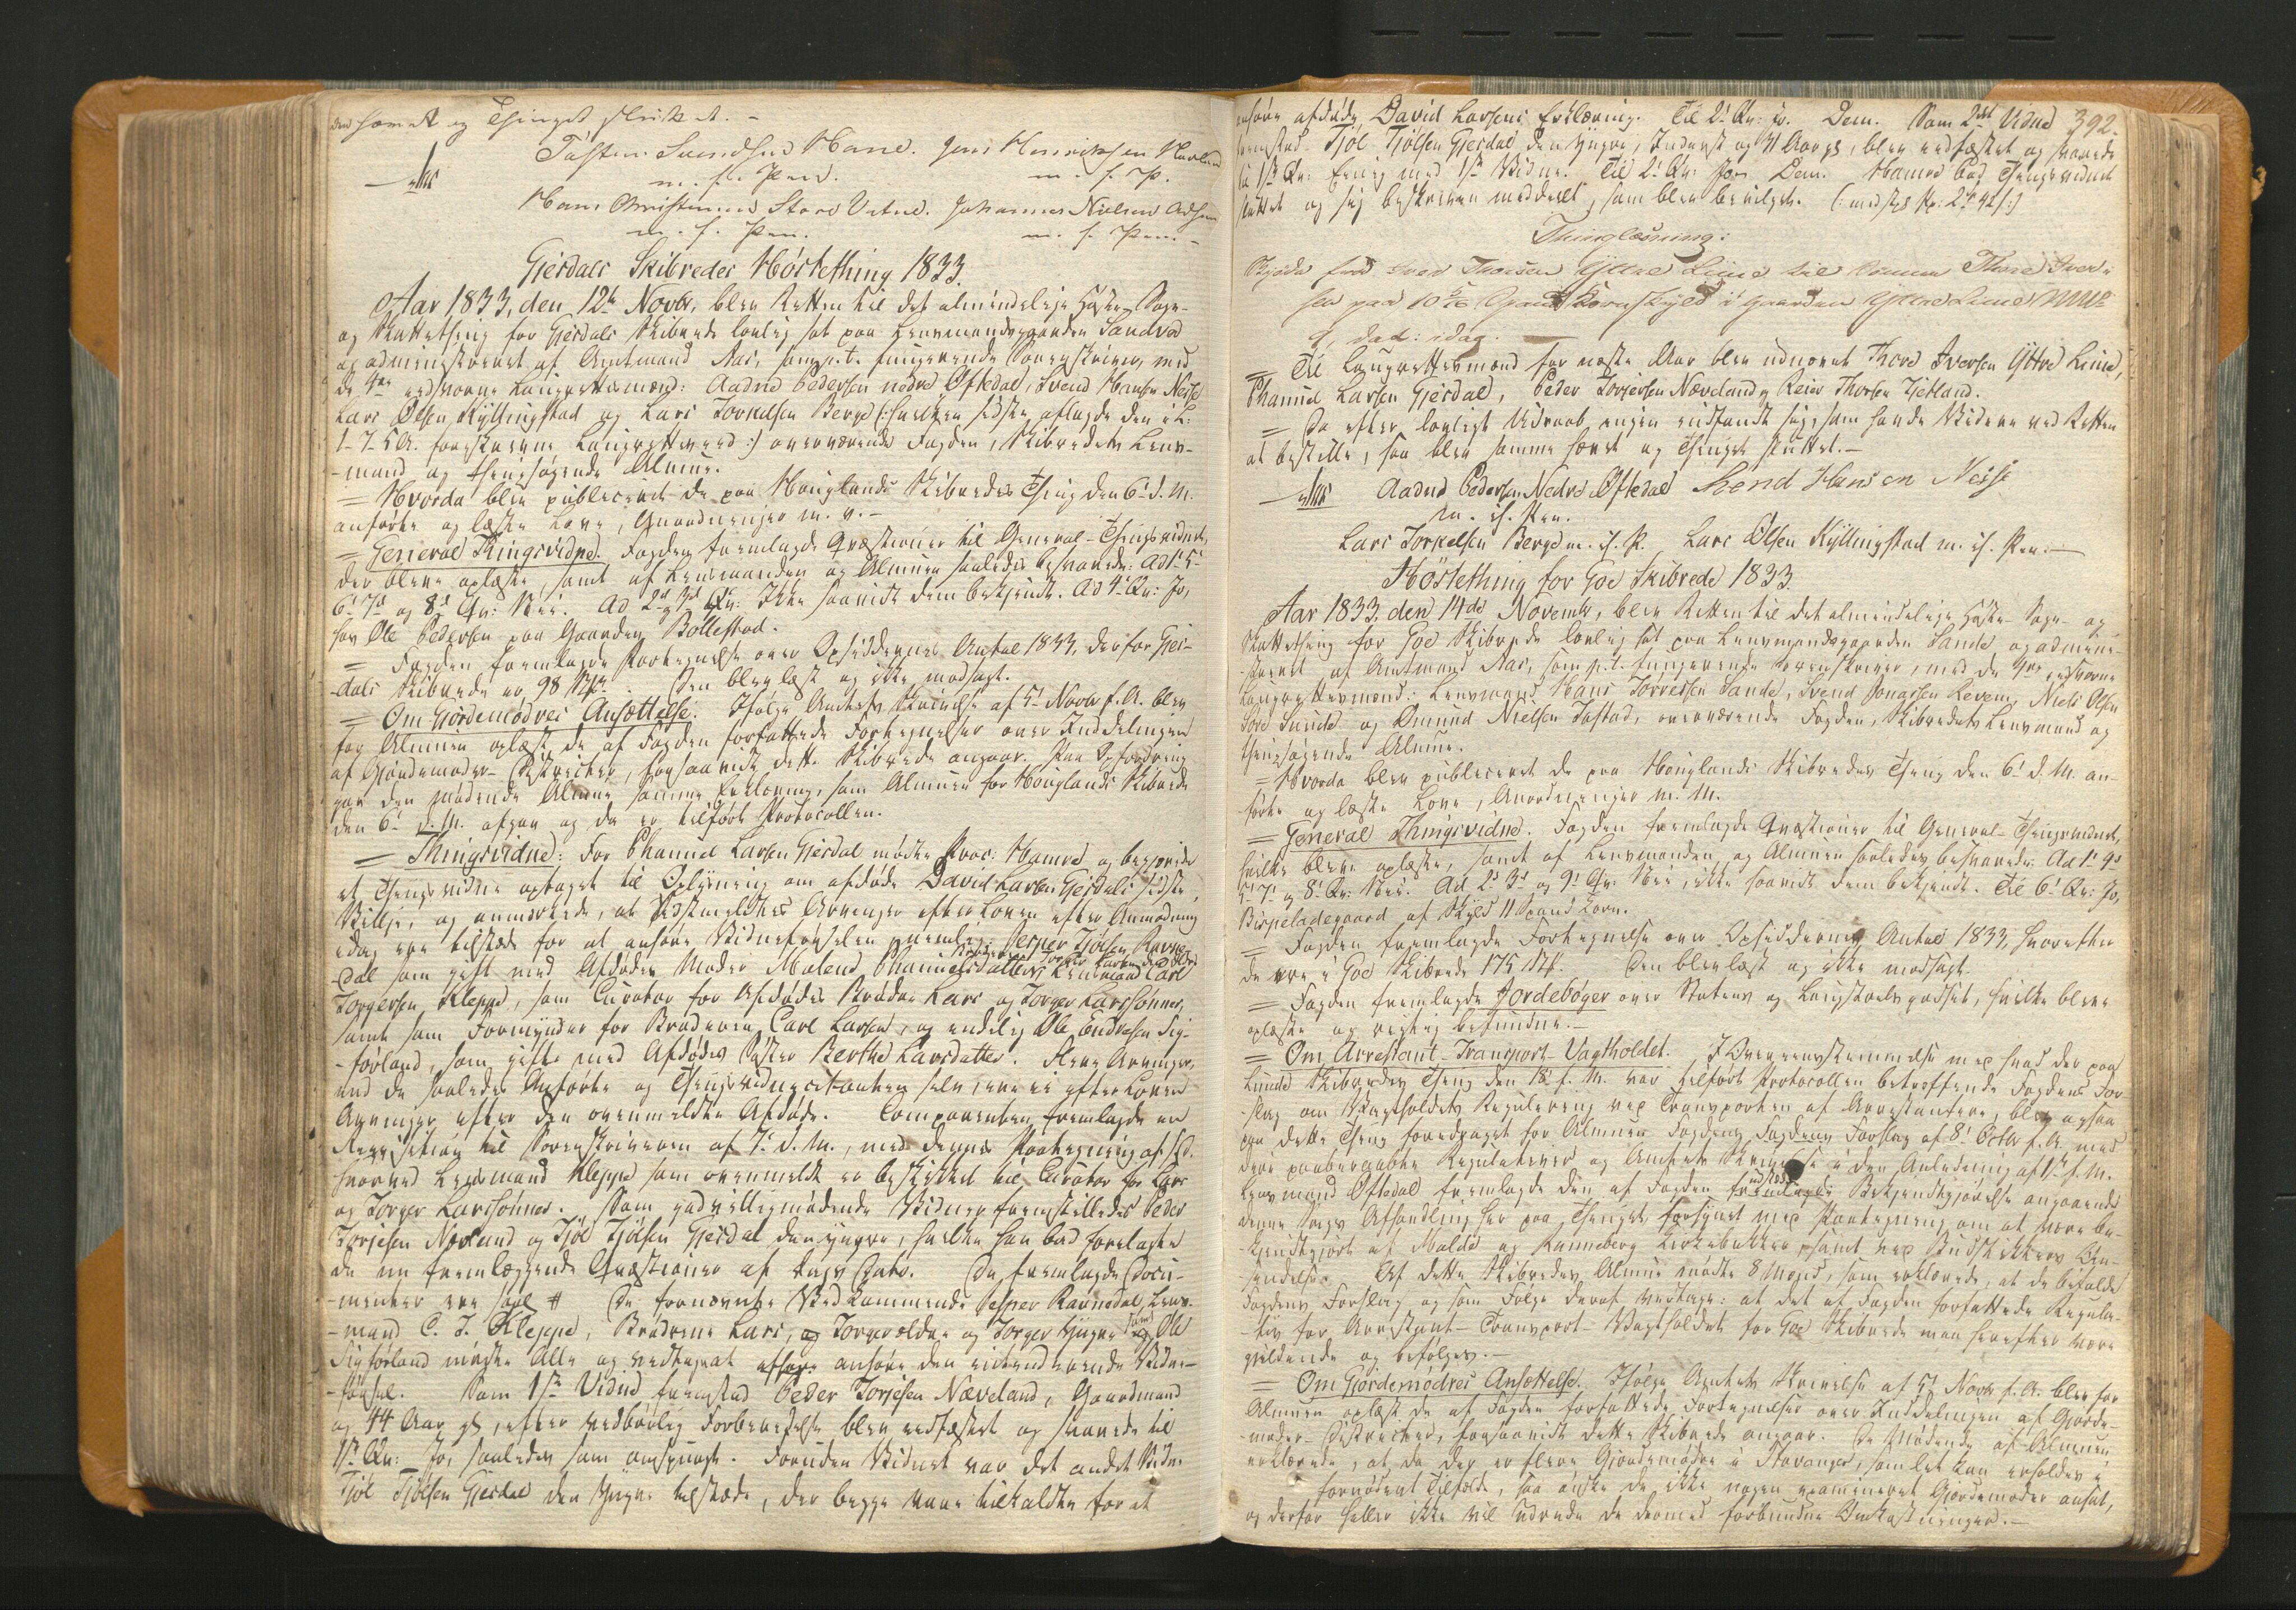 den hævet og Thinget sluttet. –
Tosten Svendsen Hane. Jens Henricksen Havland
m. f. Pen. m. f. P.
Hans Christensen Store Vatne. Johannes Nielsen Adsen
m. f. Pen. m. f. Pen. –
Gjesdals Skibredes Höstething 1833.
Aar 1833, den 12te Novbr, blev Retten til det almindelige Høste- Sage-
og Skattething for Gjesdals Skibrede lovlig sat paa Lensmandsgaarden Sandved
og administreret af Amtmand Aas, som p. t. fungerende Sorenskriver, med
de 4re edsvorne Laugrettesmænd: Aadne Pedersen nedre Øftedal, Svend Hansen Nesse
Lars Olsen Kyllingstad og Lars Torkelsen Berge (: hvilken sidste aflagde den i L:
1-7-5 A. foreskrevne Laugretteseed :) overværende Fogden, Skibredets Lens-
-mand og thingsøgende Almue.
= Hvorda blev publiceret de paa Høiglands Skibredes Thing den 6te d. M.
anførte og læste Love, Anordninger m. v. –
= General Thingsvidne. Fogden fremlagde Qvæstioner til General-Thingsvidnet,
der bleve oplæste, samt af Lensmanden og Almuen saaledes besvarede: Ad 1te 5te
6te 7de og 8de Qv: Nei. Ad 2det 3die Qv: Ikke saavidt dem bekjendt. Ad 4de Qv: Jo,
hos Ole Pedersen paa Gaarden Bollestad.
= Fogden fremlagde Fortegnelse over Opsiddernes Antal 1833, der for Gjes-
-dals Skibrede er 98 Stk. Den blev læst og ikke modsagt.
= Om Gjordemodres Ansættelse. Ifølge Amtets Skrivelse af 5te Novbr f. A. blev
for Almuen oplæst de af Fogden forfattede Fortegnelser over Inddelingen
af Gjordemoder-Districter, forsaavidt dette Skibrede angaar. Paa Opfordring
gav den mødende Almue samme Erklæring, som Almuen for Høiglands Skibrede
den 6te d. M. afgav og da er tilført Protocollen.
= Thingsvidne: For Phanuel Larsen Gjesdal mødte Proc: Hamre og begjerede
et Thingsvidne optaget til Oplysning om afdøde David Larsen Gjesdals sidste
Villje, og anmærkede, at Sidstmeldtes Arvinger efter Loven efter Anmodning
idag ere tilstæde for at anhøre Vidneførselen, nemlig: Jesper Tjölsen Ravne-
-dal som gift med Afdødes Moder Malene Phanuelsdatter, Lensmand Carl
Torgersen Kleppe, som Curator for Afdødes Brødre Lars og Torger Larssønner,
samt som Formynder for Broderen Carl Larsen, og endelig Ole Endresen Sig-
-förland, som gift med Afdødes Søster Berthe Larsdatter. Flere Arvinger,
end de saaledes Anførte og Thingsvidnecitanten selv, ere ei efter Loven
Arvinger efter den ovenmeldte Afdøde. Comparenten fremlagde en
Reqvisition til Sorenskriveren af 7de d. M., med dennes Paategning af s. D.
hvorved Lensmand Kleppe som ovenmeldt er beskikket til Curator for Lars
og Torger Larssønner. Som godvilligmødende Vidner fremstilledes Peder
Torjesen Næveland og Tjöl Tjölsen Gjesdal den yngre, hvilke han bad forelagte
de nu fremlæggende Qvæstioner af Dags Dato. De fremlagde Docu-
-menter ere saal. # De fornævnte Vedkommende Jesper Ravnedal, Lens-
-mand C. T. Kleppe, Brødrene Lars, og Torger ældre og Torger yngre samt Ole
Sigförland mødte Alle og vedtoge at anhøre den intenderende Vidne-
-førsel. Som 1ste Vidne fremstod Peder Torjesen Næveland, Gaardmand
og 44 Aar gl., efter vedbørlig Forberedelse blev eedfæstet og svarede til
1ste Qv: Jo, saaledes som omspurgt. Foruden Vidnet var det andet Vidne
Tjöl Tjölsen Gjesdal den Yngre tilstæde, der begge vare tilkaldte for at
392.
anhøre afdøde David Larsens Erklæring. Til 2de Qv: Jo. Dem. Som 2det Vidne
fremstod Tjöl Tjölsen Gjesdal den yngre, Inderst og 41 Aar gl., blev eedfæstet og svarede
til 1ste Qv: Eenig med 1ste Vidne. Til 2de Qv: Jo. Dem. Hamre bad Thingsvidnet
sluttet og sig beskreven meddeelt, som blev bevilget.
Thinglæsning:
Skjøde fra Iver Thorsen Yttre Lime til Sønnen Thore Iver-
sen paa 10 Spand Kornskyld i Gaarden Yttre Lime
dat: idag.
= Til Laugrettesmænd for næste Aar blev udnævnt Thore Iversen Yttre Lime,
Phanuel Larsen Gjesdal, Peder Torjersen Næveland og Reier Thorsen Tjetland.
= Da efter lovligt Udraab ingen indfandt sig, som havde Videre ved Retten
at bestille, saa blev samme hævet og Thinget sluttet. –
Aadne Pedersen Nedre Öftedal Svend Hansen Nesse
m. if. Pen.
Lars Torkelsen Berge m. if. P. Lars Olsen Kyllingstad m. if. Pen. –
Höstething for Goe Skibrede 1833.
Aar 1833, den 14de Novembr, blev Retten til det almindelige Høste- Sage- og
Skattething for Goe Skibrede lovlig sat paa Lensmandsgaarden Sande og admini-
-streret af Amtmand Aas, som p. t. fungerende Sorenskriver, med de 4re edsvorne
Laugrettesmænd: Lensmand Hans Törressen Sande, Svend Jonassen Revem, Niels Olsen
Tore Sunde og Omund Nielsen Jåstad, overværende Fogden, Skibredets Lensmand og
thingsøgende Almue.
= Hvorda blev publiceret de paa Høiglands Skibredes Thing den 6te d. M. an-
førte og læste Love, Anordninger m. M.
= General Thingsvidne. Fogden fremlagde Qvæstioner til General-Thingsvidnet,
hvilke bleve oplæste, samt af Lensmanden og Almuen saaledes besvarede: Ad 1te 4de
5te 7de og 8de Qv: Nei. Ad 2det 3die og 9de Qv: Nei, ikke saavidt dem bekjendt. Til 6te Qv: Jo,
Bispeladegaard af Skyld 11 Spand Korn.
= Fogden fremlagde Fortegnelse over Opsiddernes Antal 1833, hvorefter
de ere i Goe Skibrede 175 Stk. Den blev læst og ikke modsagt.
= Fogden fremlagde Jordebøger over Statens og Laugstoels godset, hvilke bleve
oplæste og rigtig befundne. –
= Om Arrestant-Transport-Vagtholdet. I Overeensstemmelse med hvad der paa
Lunde Skibredes Thing den 18de f. M. var tilført Protocollen betreffende Fogdens For-
-slag om Vagtholdets Regulering ved Transporten af Arrestantere, blev ogsaa
paa dette Thing foredraget for Almuen Fogdens Fogdens Forslag af 8de Octbr f. A. med
deri paaberaabte Regulativer og Amtets Skrivelse i den Anledning af 1ste f. M.
Lensmand Øftedal fremlagde den af Fogden fremlagde udstedte Bekjendtgjørelse angaaende
denne Sags Afhandling her paa Thinget forsynet med Paategning om at være be-
-kjendtgjort af Malde og Randeberg Kirkebakker samt ved Budstikkens Om-
-sendelse. Af dette Skibredes Almue mødte 8 Mand, som erklærede, at de bifaldt
Fogdens Forslag og som Følge deraf vedtoge: at det af Fogden forfattede Regula-
-tiv for Arrestant-Transport-Vagtholdet for Goe Skibrede maa herefter være
gjeldende og befølges. –
= Om Gjordemødres Ansættelse. Ifølge Amtets Skrivelse af 5te Novbr f. A. blev for
Almuen oplæst de af Fogden forfattede Fortegnelser over Inddelingen af Gjorde-
-moder-Districter, forsaavidt dette Skibrede angaar. De Mødende af Almuen
erklærede, at da der er flere Gjordemødre i Stavanger, som let kan erholdes i
fornødent Tilfælde, saa ønske de ikke nogen examineret Gjordemoder ansat,
og derfor heller ikke vil udrede de dermed forbundne Omkostninger. –